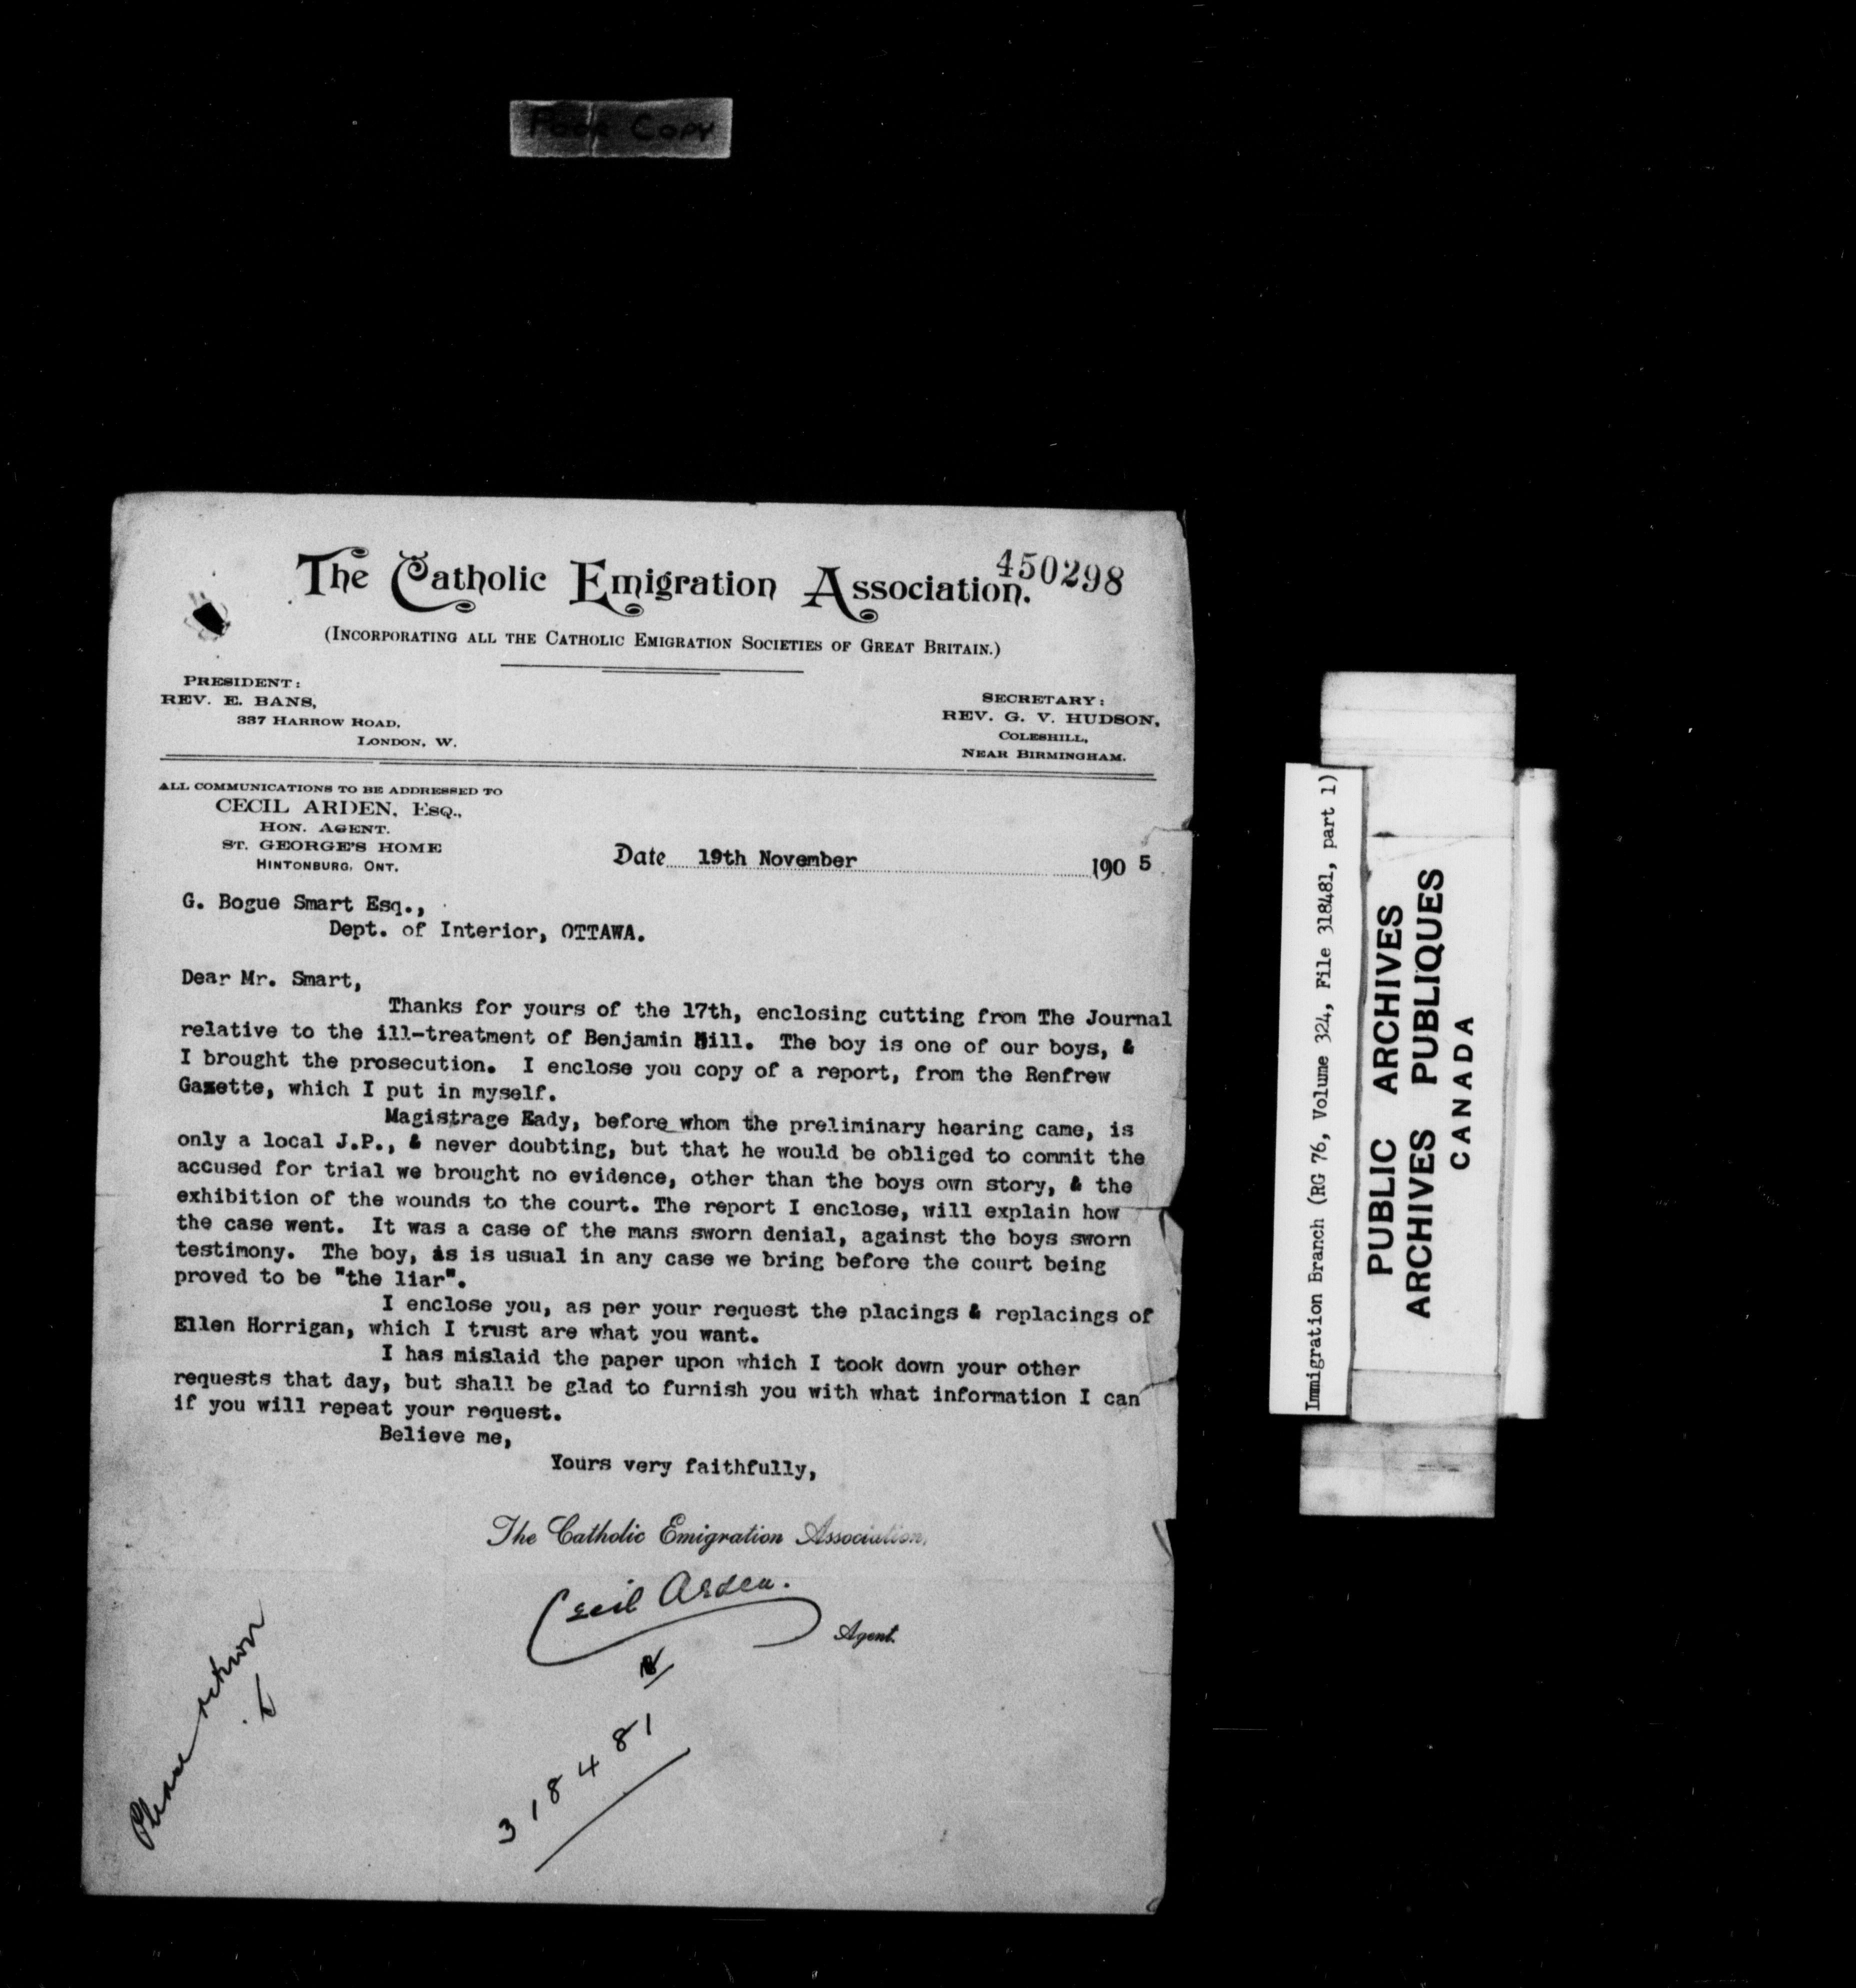 Poor Copy
450298
The Catholic Emigration Association.
(INCORPORATING ALL THE CATHOLIC EMIGRATION SOCIETIES OF GREAT BRITAIN.)
PRESIDENT:
REV. E. BANS,
337 HARROW ROAD,
LONDON, W.
SECRETARY:
REV. G. V. HUDSON,
COLESHILL,
NEAR BIRMINGHAM.
ALL COMMUNICATIONS TO BE ADDRESSED TO
CECIL ARDEN, ESQ.,
HON. AGENT.
ST. GEORGE'S HOME
HINTONBURG, ONT.
Date 19th November 190 5
G. Bogue Smart Esq.,
Dept. of Interior, OTTAWA.
Dear Mr. Smart,
Thanks for yours of the 17th, enclosing cutting from The Journal
relative to the ill-treatment of Benjamin Hill. The boy is one of our boys, &
I brought the prosecution. I enclose you copy of a report, from the Renfrew
Gazette, which I put in myself.
Magistrage Eady, before whom the preliminary hearing came, is
only a local J.P., & never doubting, but that he would be obliged to commit the
accused for trial we brought no evidence, other than the boys own story, & the
exhibition of the wounds to the court. The report I enclose, will explain how
the case went. It was a case of the mans sworn denial, against the boys sworn
testimony. The boy, as is usual in any case we bring before the court being
proved to be "the liar".
I enclose you, as per your request the placings & replacings of
Ellen Horrigan, which I trust are what you want.
I has mislaid the paper upon which I took down your other
requests that day, but shall be glad to furnish you with what information I can
if you will repeat your request.
Believe me,
Yours very faithfully,
The Catholic Emigration Association,
Cecil Arden.
Agent.
318481
Please return
Immigration Branch (RG 76, Volume 324, File 318481, part 1)
PUBLIC ARCHIVES
ARCHIVES PUBLIQUES
CANADA